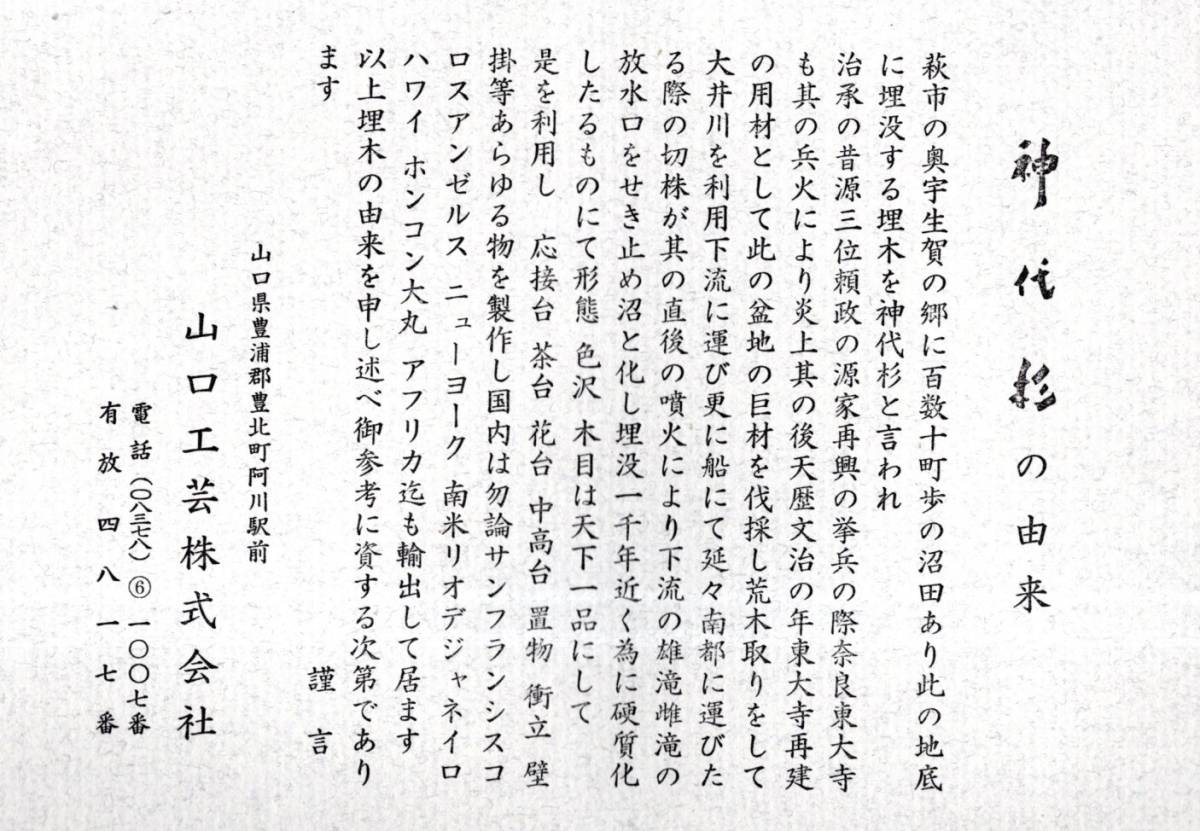 神代杉の由来
萩市の奥宇生賀の郷に百数十町歩の沼田あり此の地底
に埋没する埋木を神代杉と言われ
治承の昔源三位頼政の源家再興の挙兵の際奈良東大寺
も其の兵火により炎上其の後天歴文治の年東大寺再建
の用材として此の盆地の巨材を伐採し荒木取りをして
大井川を利用下流に運び更に船にて延々南都に運びた
る際の切株が其の直後の噴火により下流の雄滝雌滝の
放水口をせき止め沼と化し埋没一千年近く為に硬質化
したるものにて形態 色沢 木目は天下一品にして
是を利用し 応接台 茶台 花台 中高台 置物 衝立 壁
掛等あらゆる物を製作し国内は勿論サンフランシスコ
ロスアンゼルス ニューヨーク 南米リオデジャネイロ
ハワイ ホンコン大丸 アフリカ迄も輸出して居ます
以上埋木の由来を申し述べ御参考に資する次第であり
ます
謹言
山口県豊浦郡豊北町阿川駅前
山口工芸株式会社
電話(〇八三七八)⑥一〇〇七番
有放四八一七番